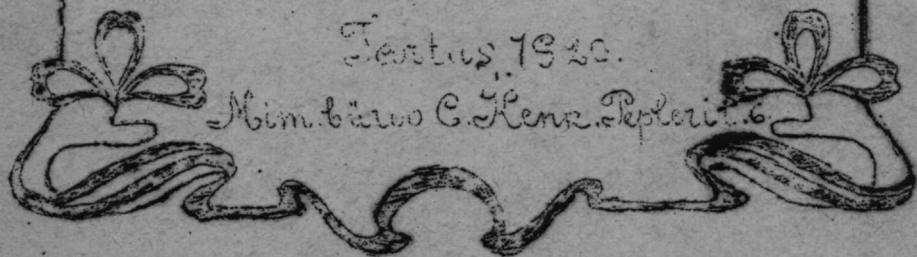 Tartus, 1920.
Mim.büroo C. Henr. Pepleri t. 6.